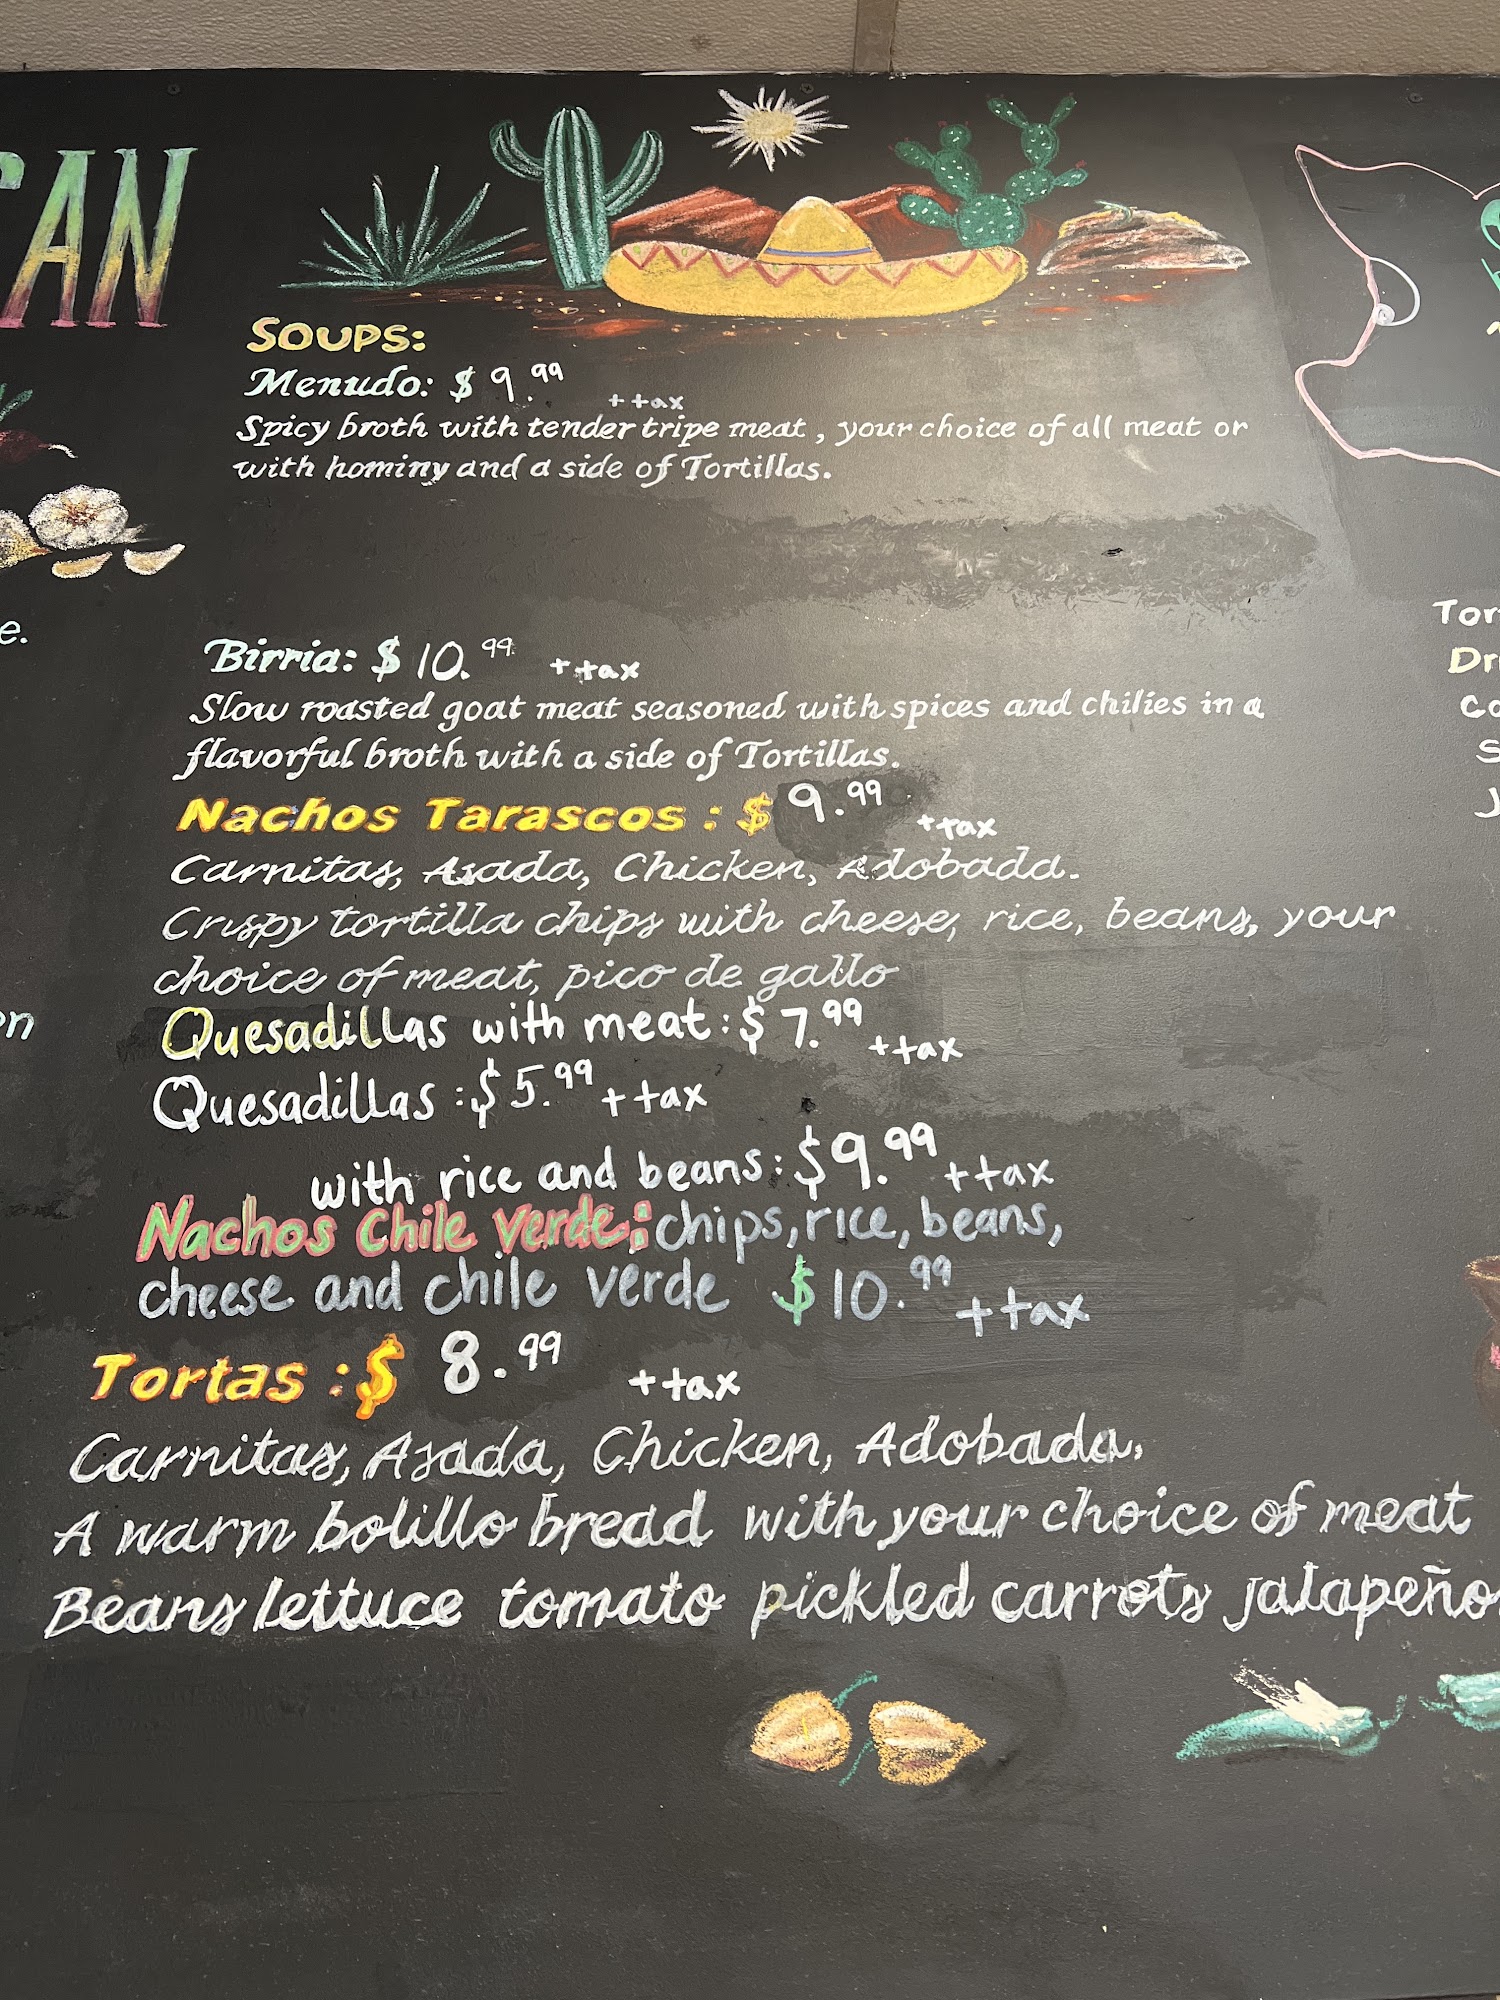 CAN
SOUPS:
Menudo: $9.99 + tax
Spicy broth with tender tripe meat, your choice of all meat or
with hominy and a side of Tortillas.
e.
Birria: $10.99 + tax
Slow roasted goat meat seasoned with spices and chilies in a
flavorful broth with a side of Tortillas.
Nachos Tarascos: $9.99 + tax
Carnitas, Asada, Chicken, Adobada.
Crispy tortilla chips with cheese, rice, beans, your
choice of meat, pico de gallo
en
Quesadillas with meat: $7.99 + tax
Quesadillas: $5.99 + tax
with rice and beans: $9.99 + tax
Nachos Chile Verde: chips, rice, beans,
cheese and chile verde $10.99 + tax
Tortas: $8.99 + tax
Carnitas, Asada, Chicken, Adobada.
A warm bolillo bread with your choice of meat
Beans lettuce tomato pickled carrots jalapeño
Tor
Dr
Co
S
J